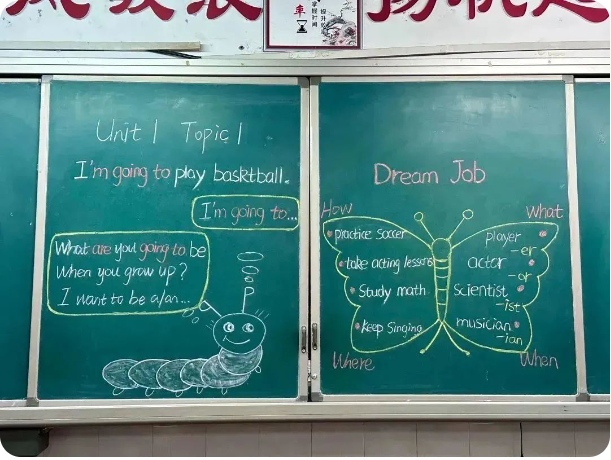 Unit 1 Topic 1
I'm going to play basktball.
I'm going to...
What are you going to be
When you grow up?
I want to be a/an...
Dream Job
How
What
practice soccer
take acting lessons
Study math
Keep Singing
player
-er
actor
-or
scientist
-ist
musician
-ian
Where
When